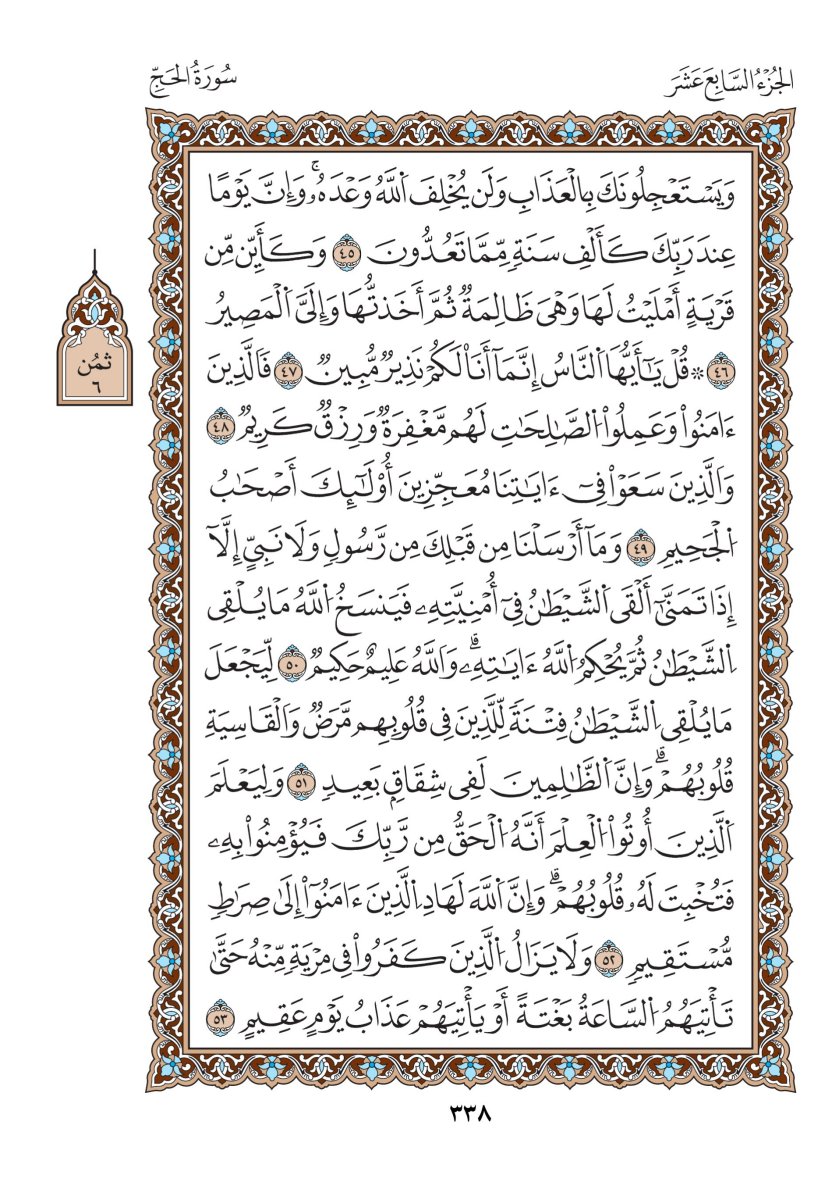 الجُزْءُ السَّابِعَ عَشَرَ
سُورَةُ الحَجِّ
وَيَسْتَعْجِلُونَكَ بِالْعَذَابِ وَلَنْ يُخْلِفَ اَللَّهُ وَعْدَهُۥۚ وَإِنَّ يَوْمًا
عِندَ رَبِّكَ كَأَلْفِ سَنَةٍ مِّمَّا تَعُدُّونَ ٤٥ وَكَأَيِّن مِّن
قَرْيَةٍ أَمْلَيْتُ لَهَا وَهْيَ ظَالِمَةٌ ثُمَّ أَخَذتُّهَا وَإِلَيَّ اَلْمَصِيرُ
٤٦ ۞ قُلْ يَٰٓأَيُّهَا اَلنَّاسُ إِنَّمَآ أَنَا۠ لَكُمْ نَذِيرٌ مُّبِينٌ ٤٧ فَالَّذِينَ
ءَامَنُواْ وَعَمِلُواْ اُلصَّٰلِحَٰتِ لَهُم مَّغْفِرَةٌ وَرِزْقٌ كَرِيمٌ ٤٨
وَالَّذِينَ سَعَوْاْ فِيٓ ءَايَٰتِنَا مُعَجِّزِينَ أُوْلَٰٓئِكَ أَصْحَٰبُ
اُلْجَحِيمِ ٤٩ وَمَآ أَرْسَلْنَا مِن قَبْلِكَ مِن رَّسُولٍ وَلَا نَبِيٍّ إِلَّآ
إِذَا تَمَنَّىٰٓ أَلْقَى اَلشَّيْطَٰنُ فِيٓ أُمْنِيَّتِهِۦ فَيَنسَخُ اُللَّهُ مَا يُلْقِي
اِلشَّيْطَٰنُ ثُمَّ يُحْكِمُ اُللَّهُ ءَايَٰتِهِۦۗ وَاللَّهُ عَلِيمٌ حَكِيمٌ ٥٠ لِّيَجْعَلَ
مَا يُلْقِي اِلشَّيْطَٰنُ فِتْنَةً لِّلَّذِينَ فِي قُلُوبِهِم مَّرَضٌ وَالْقَاسِيَةِ
قُلُوبُهُمْۗ وَإِنَّ اَلظَّٰلِمِينَ لَفِي شِقَاقٍۭ بَعِيدٍ ٥١ وَلِيَعْلَمَ
اَلَّذِينَ أُوتُواْ اُلْعِلْمَ أَنَّهُ اُلْحَقُّ مِن رَّبِّكَ فَيُؤْمِنُواْ بِهِۦ
فَتُخْبِتَ لَهُۥ قُلُوبُهُمْۗ وَإِنَّ اَللَّهَ لَهَادِ اِلَّذِينَ ءَامَنُوٓاْ إِلَىٰ صِرَٰطٍ
مُّسْتَقِيمٍ ٥٢ وَلَا يَزَالُ اُلَّذِينَ كَفَرُواْ فِي مِرْيَةٍ مِّنْهُ حَتَّىٰ
تَأْتِيَهُمُ اُلسَّاعَةُ بَغْتَةً أَوْ يَأْتِيَهُمْ عَذَابُ يَوْمٍ عَقِيمٍ ٥٣
ثُمُن
٦
٣٣٨